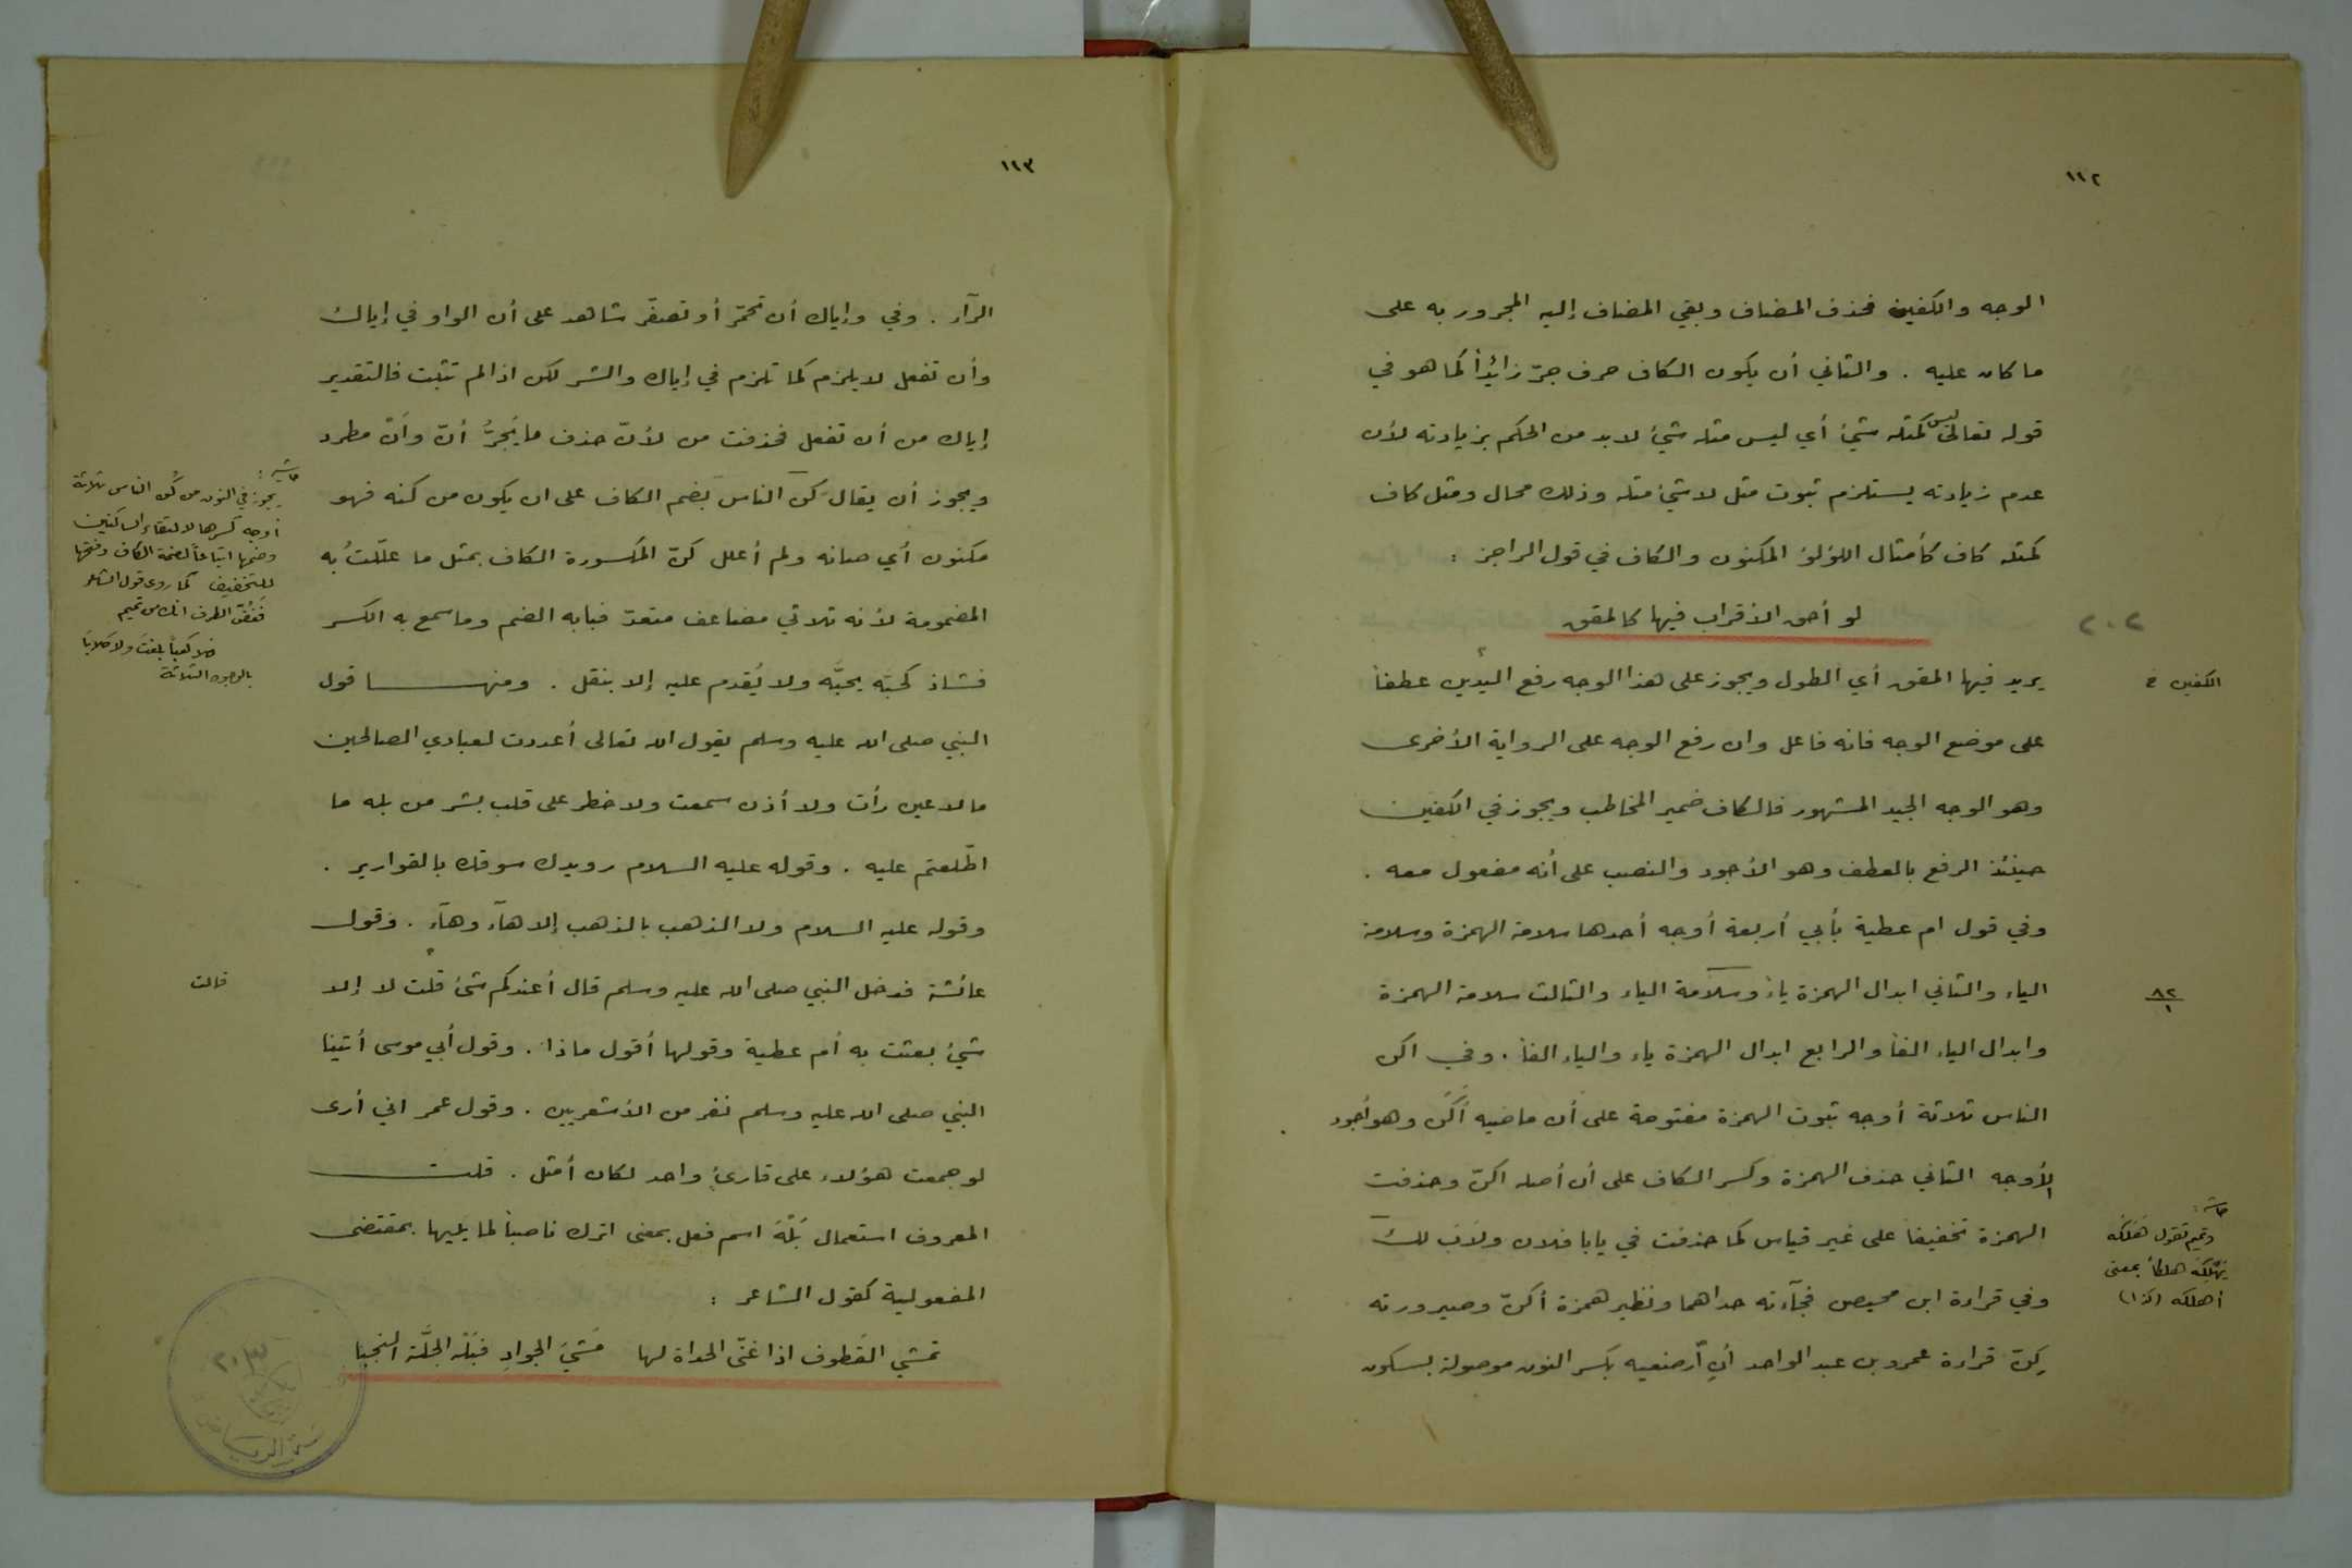 ١١٢
الوجه والكفين فحذف المضاف وبقي المضاف إليه المجرور به على
ما كان عليه . والثاني أن يكون الكاف حرف جرّ زائداً كما هو في
قوله تعالى ليس كمثله شيء أي ليس مثله شيء لابد من الحكم بزيادته لأن
عدم زيادته يستلزم ثبوت مثل لا شيء مثله وذلك محال ومثل كاف
كمثله كاف كأمثال اللؤلؤ المكنون والكاف في قول الراجز :
لو أحق الأقراب فيها كالمقق
٢٠٢
يريد فيها المقق أي الطول ويجوز على هذا الوجه رفع اليدين عطفاً
الكفين خ
على موضع الوجه فانه فاعل وان رفع الوجه على الرواية الأخرى
وهو الوجه الجيد المشهور فالكاف ضمير المخاطب ويجوز في الكفين
حينئذ الرفع بالعطف وهو الأجود والنصب على أنه مفعول معه .
وفي قول ام عطية بأبي أربعة أوجه أحدها سلامة الهمزة وسلامة
الياء والثاني ابدال الهمزة ياءً وسلامة الياء والثالث سلامة الهمزة
٨٢
١
وابدال الياء الفاً والرابع ابدال الهمزة ياء والياء الفاً . وفي اكن
الناس ثلاثة أوجه ثبوت الهمزة مفتوحة على أن ماضيه أكَنّ وهو أجود
الأوجه الثاني حذف الهمزة وكسر الكاف على أن أصله اكنّ وحذفت
الهمزة تخفيفاً على غير قياس كما حذفت في يابا فلان ولاب لك
وفي قراءة ابن محيصن فجآءته حداهما ونظير همزة أكنّ وصيرورته
كِنّ قراءة عمرو بن عبد الواحد أنِ آرضعيه بكسر النون موصولة بسكون
حاشية :
وتميم تقول هَلَكَه
يَهْلِكه هلكاً بمعنى
أهلكه (كذا)
١١٣
الرآء . وفي وإياك أن تحمّر أو تصفّر شاهد على أن الواو في إياك
وأن تفعل لا يلزم كما تلزم في إياك والشر لكن اذا لم تثبت فالتقدير
إياك من أن تفعل فحذفت من لأنّ حذف ما يَجرُّ أنّ وأنْ مطرد
ويجوز أن يقال كن الناس بضم الكاف على ان يكون من كنه فهو
مكنون أي صانه ولم أعلل كنّ المكسورة الكاف بمثل ما علّلتُ به
المضمومة لأنه ثلاثي مضاعف متعدّ فبابه الضم وما سمع به الكسر
فشاذ كحبّه يحبّه ولا يُقدم عليه إلا بنقل . ومنها قول
النبي صلى الله عليه وسلم يقول الله تعالى أعددت لعبادي الصالحين
ما لا عين رأت ولا أذن سمعت ولا خطر على قلب بشر من بله ما
اطّلعتم عليه . وقوله عليه السلام رويدك سوقك بالقوارير .
وقوله عليه السلام ولا الذهب بالذهب إلا هآء وهآء . وقول
عائشة فدخل النبي صلى الله عليه وسلم قال أعندكم شئ قلت لا إلا
قالت
شيء بعثت به أم عطية وقولها أقول ماذا . وقول أبي موسى أتينا
النبي صلى الله عليه وسلم نفر من الأشعريين . وقول عمر اني أرى
لو جمعت هؤلاء على قارئ واحد لكان أمثل . قلت
المعروف استعمال بَلْهَ اسم فعل بمعنى اترك ناصباً لما يليها بمقتضى
المفعولية كقول الشاعر :
تمشي القَطوف اذا غنّى الحداة لها مَشْيَ الجوادِ فبَلْهَ الجِلَّةَ النجبا
حاشية :
يجوز في النون من كُن الناس ثلاثة
أوجه كسرها لالتقاء الساكنين
وضمها اتباعاً لضمة الكاف وفتحها
للتخفيف كما روى قول الشاعر
فَغُضّ الطرف انك من نمير
فلا كعباً بلغتَ ولا كلابا
بالوجوه الثلاثة
٢٠٣